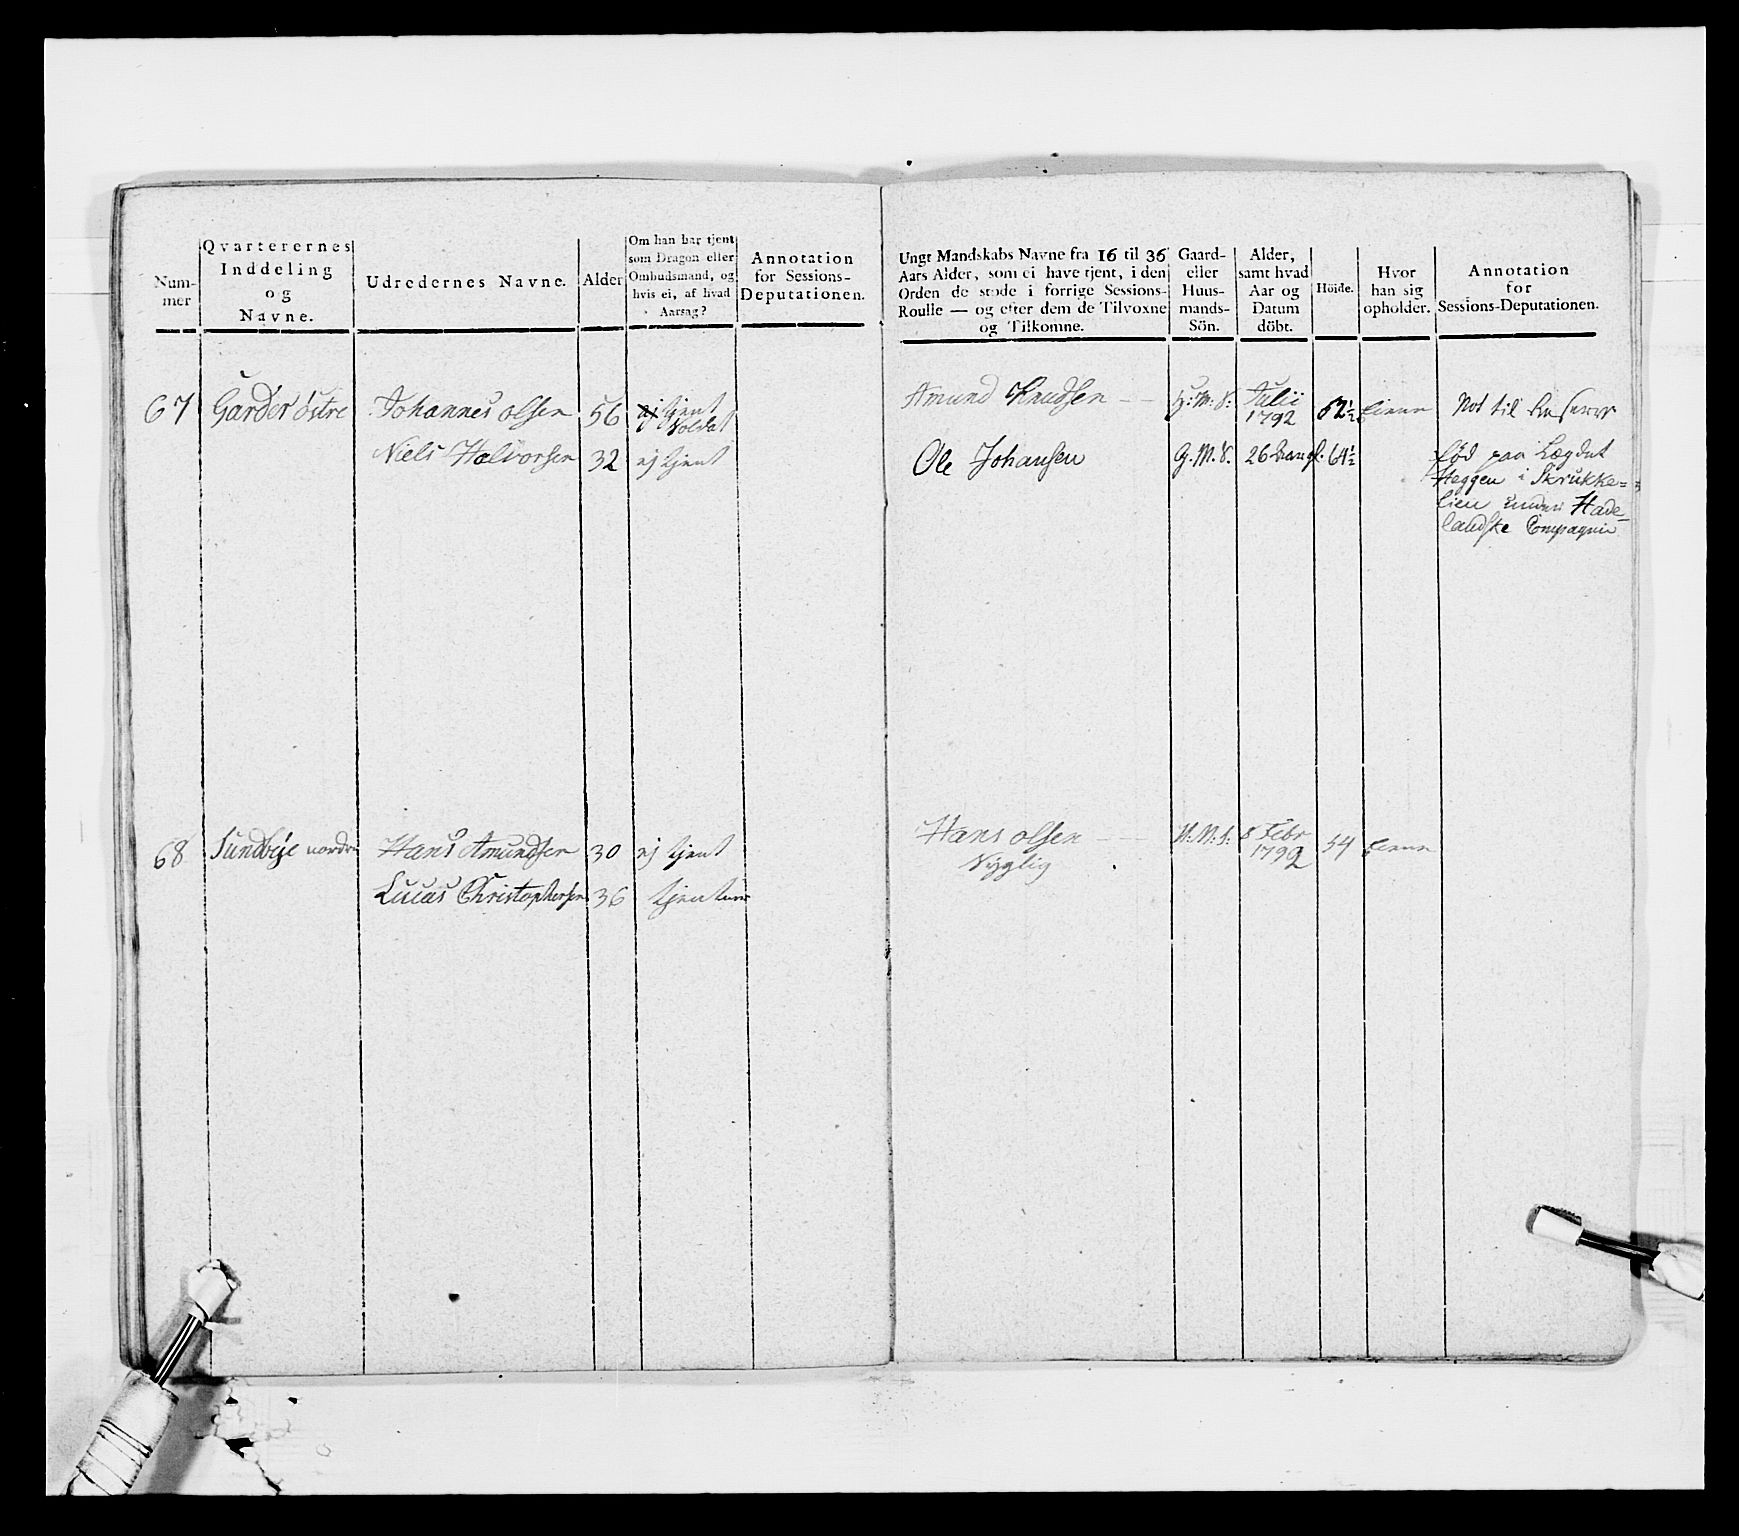 Num-
mer
Qvarterernes
Inddeling
og
Navne.
Udredernes Navne.
Alder
Om han har tjent
som Dragon eller
Ombudsmand, og
hvis ei, af hvad
Aarsag?
Annotation
for Sessions-
Deputationen.
67 Garder östre Johannes Olsen 56 ej tjent
Soldat
Niels Halvorsen 32 ej tjent
68 Sundbye nordre Hans Amundsen 30 ej tjent
Lucas Christophersen 36 tjent
Ungt Mandskabs Navne fra 16 til 36
Aars Alder, som ei have tjent, i den
Orden de stode i forrige Sessions-
Roulle — og efter dem de Tilvoxne
og Tilkomne.
Gaard-
eller
Huus-
mands-
Sön.
Alder,
samt hvad
Aar og
Datum
döbt.
Höide.
Hvor
han sig
opholder.
Annotation
for
Sessions-Deputationen.
Amund Knudsen H: M: S: Julii
1792 62½ hiemme Not til Reserve
Ole Johansen G. M. S. 26 64½ Död paa Lægdet
Heggen i Skrukke-
lien under Hade-
landske Compagnie
Hans Olsen H: M: S: 8 Febr
1792 54 hiemme
Nÿglig